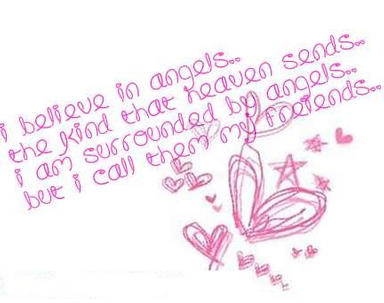 i believe in angels..
the kind that heaven sends..
i am surrounded by angels..
but i call them my friends..